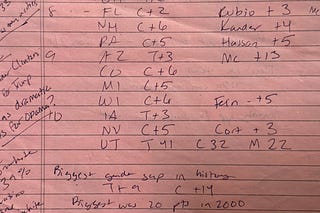 8 - FL C+2 Rubio + 3
NH C+6 Kander +4
PA C+5 Hassan +5
9 AZ T+3 Mc +13
CO C+6
MI C+5
WI C+6 Fein - +5
10 IA T+3
NV C+5 Cort + 3
UT T 41 C 32 M 22
Clinton
is Trump
dramatic
for Obama?
Biggest gender gap in history
T+9 C +14
Biggest was 20 pts in 2000